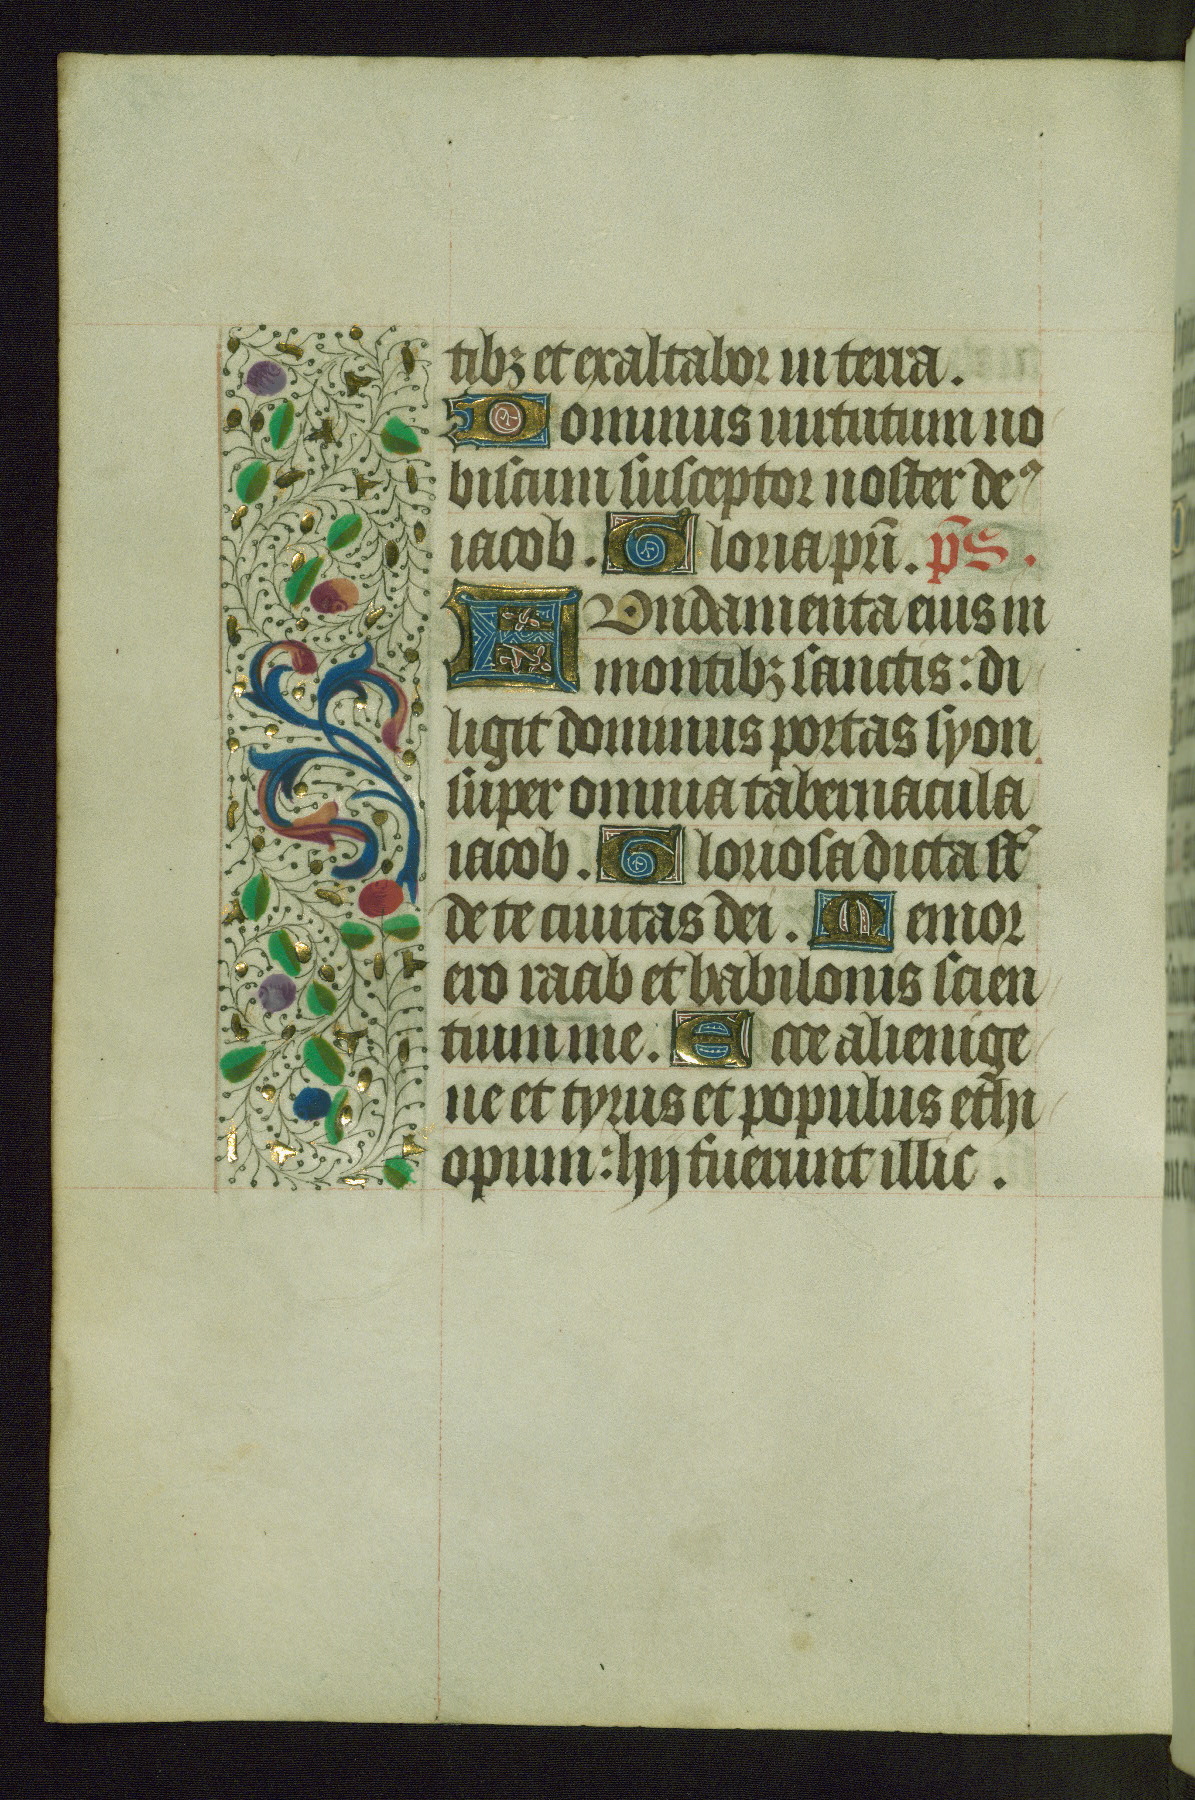 tibꝫ et exaltabor in terra.
Dominus uirtutum no
biscum susceptor noster deꝰ
iacob. Gloria pr̄i. p̄s.
Fundamenta eius in
montibꝫ sanctis: di
ligit dominus portas syon
super omnia tabernacula
iacob. Gloriosa dicta st̄
de te ciuitas dei. Memor
ero raab et babilonis scien
tium me. Ecce alienige
ne et tyrus et populus ethi
opum: hij fuerunt illic.